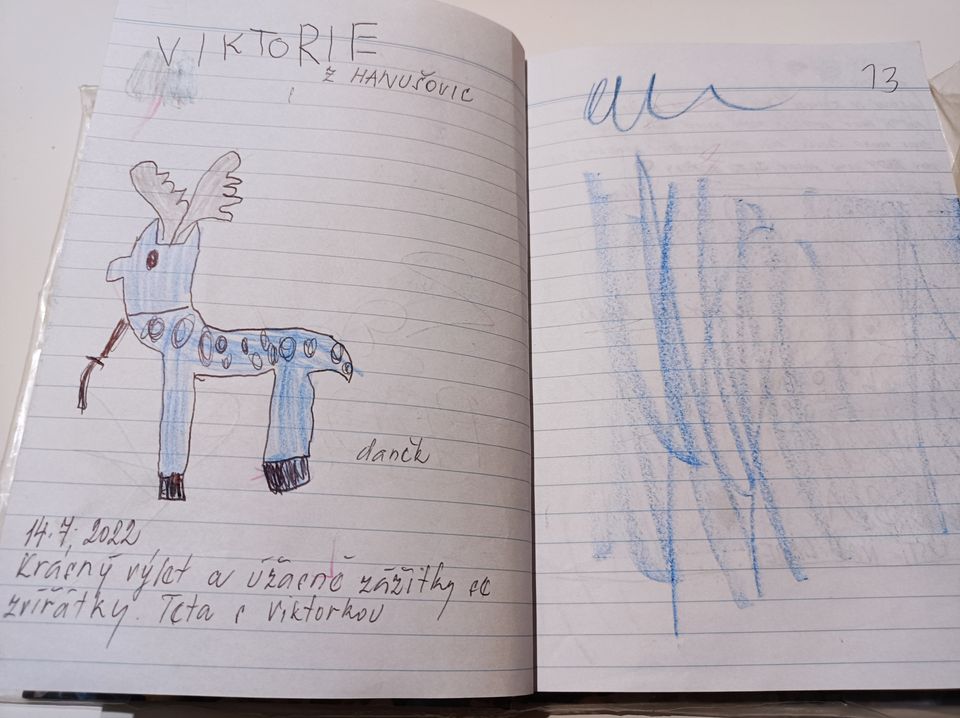 VIKTORIE
Z HANUŠOVIC
daněk
14.7.2022
Krásný výlet a úžasné zážitky se
zvířátky. Teta s Viktorkou
13